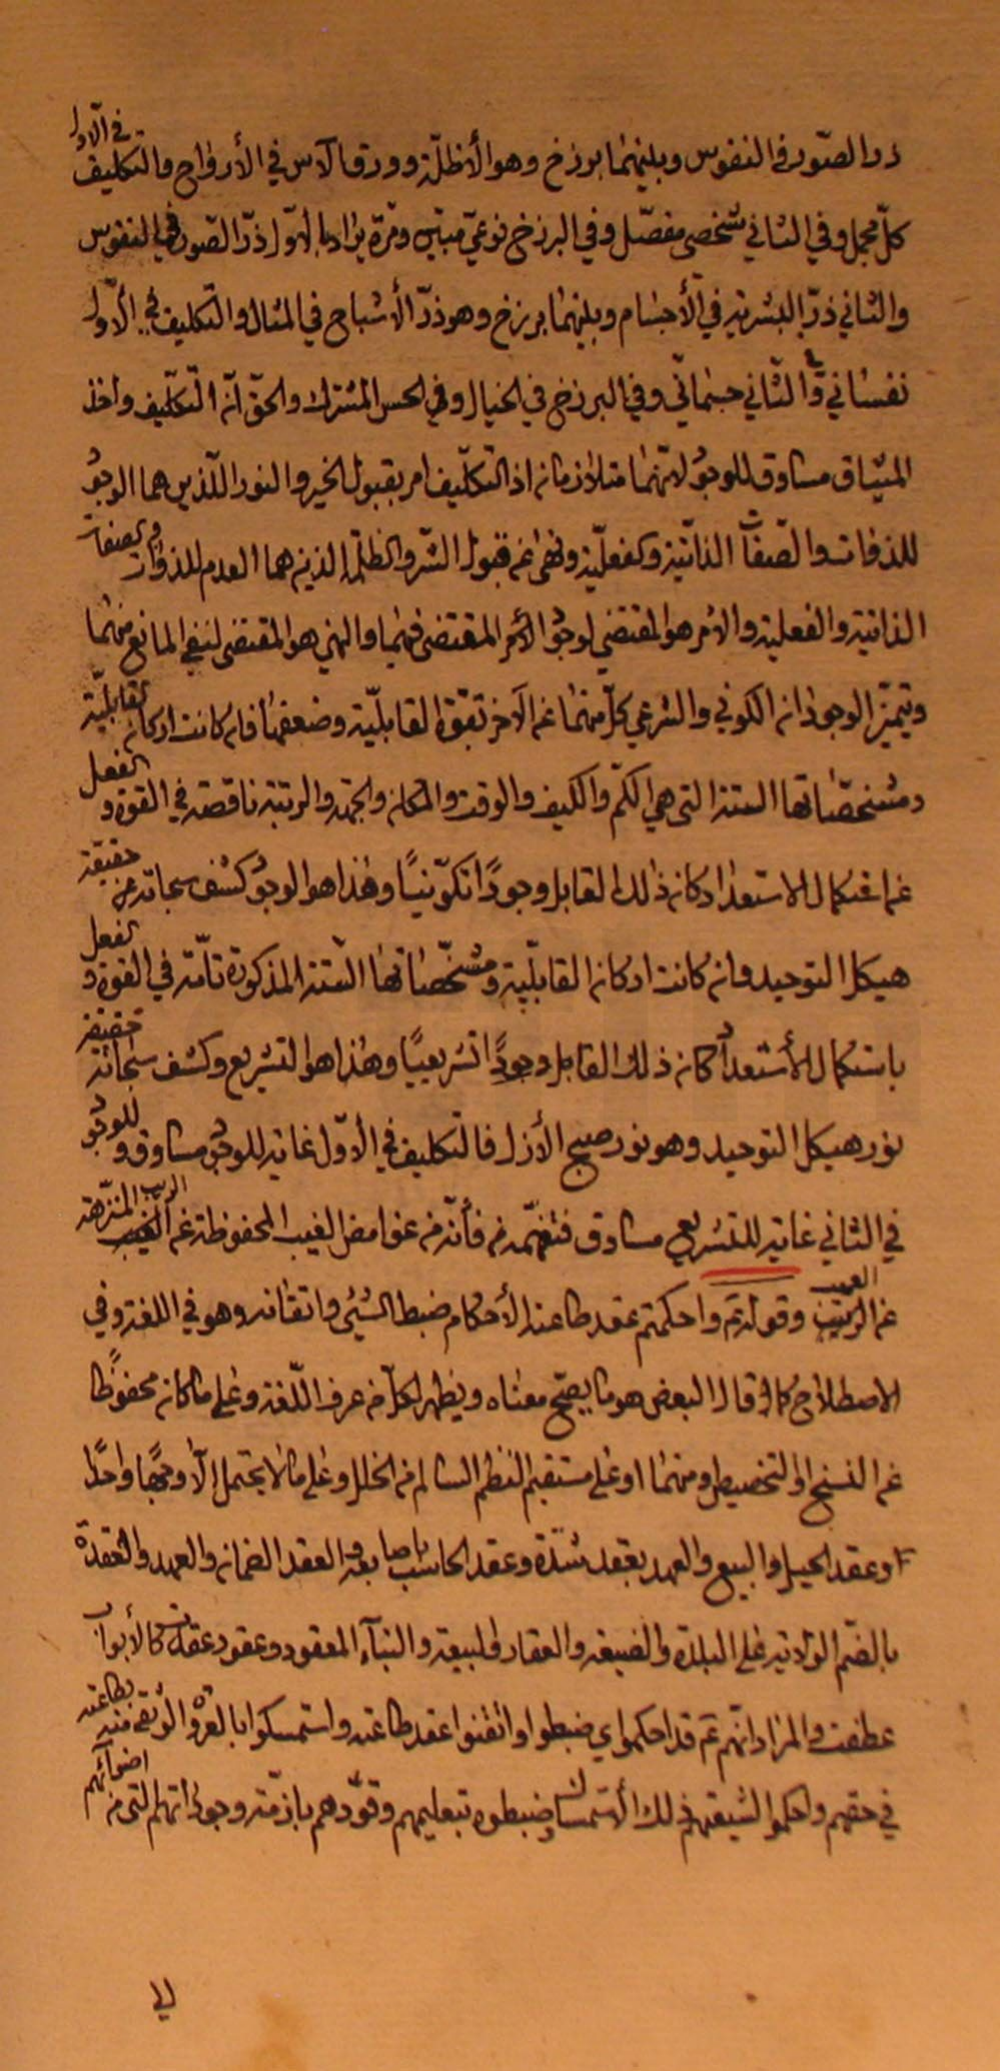 ذر الصور في النفوس وبينهما برزخ وهو الأظلة وورق الآس في الأرواح والتكليف في الأول
كل مجمل وفي الثاني شخصي مفصل وفي البرزخ نوعي مبين ومرة يراد بالأول ذر الصور في النفوس
والثاني ذر البشرية في الأجسام وبينهما برزخ وهو ذر الأشباح في المثال والتكليف في الأول
نفساني والثاني جسماني وفي البرزخ في الخيال وفي الحس المشترك والحق أن التكليف واخذ
الميثاق مساوق للوجود لأنهما متلازمان اذ التكليف امر بقبول الخير والنور اللذين هما الوجود
للذوات والصفات الذاتية والفعلية ونهى عن قبول الشر والظلمة الذين هما العدم للذوات والصفات
الذاتية والفعلية والأمر هو المقتضي لوجود الأمر المقتضى فيهما والنهي هو المقتضى لنفي المانع منهما
وتميز الوجودان الكوني والشرعي كل منهما عن الآخر بقوة القابلية وضعفها فان كانت اركان القابلية
ومشخصاتها الستة التي هي الكم والكيف والوقت والمكان والجهة والرتبة ناقصة في القوة والفعل
عن استكمال الاستعداد كان ذلك القابل وجودًا تكوينيًا وهذا هو الوجود كشف سبحاته عن حقيقة
هيكل التوحيد وان كانت اركان القابلية ومشخصاتها الستة المذكورة تامة في القوة والفعل
باستكمال الأستعداد كان ذلك القابل وجودًا تشريعيًا وهذا هو التشريع وكشف سبحاته حقيقة
نور هيكل التوحيد وهو نور صبح الأزل فالتكليف في الأول غاية للوجود مساوق وللوجود
في الثاني غاية للتشريع مساوق فتفهم فأنه من غوامض الغيب المحفوظة عن الريب المنزهة
عن العيب وقوله ع واحكمتم عقد طاعته الأحكام ضبط الشيئ واتقانه وهو في اللغة وفي
الاصطلاح كما قال البعض هو ما يصح معناه ويظهر لكل من عرف اللغة وعلى ما كان محفوظًا
عن النسخ او التخصيص ومنهما او على مستقيم النظم السالم من الخلل وعلى ما لا يحتمل إلا وجهًا واحدًا
وعقد الحبل والبيع والعهد يعقده شده وعقد الحاسب باصابعه والعقد الضمان والعهد والعقدة
بالضم الولاية على البلدة والضيعة والعقار والبيعة والبناء المعقود وعقود عقدت كالأبواب
عطفت والمراد انهم ع قد احكموا اي ضبطوا واتقنوا عقد طاعته واستمسكوا بالعروة الوثقى منه بطاعته
في حقهم واحكموا لشيعتهم ذلك الاستمساك وضبطوه بتعليمهم وقودهم بازمة وجوداتهم التي من اضوائهم